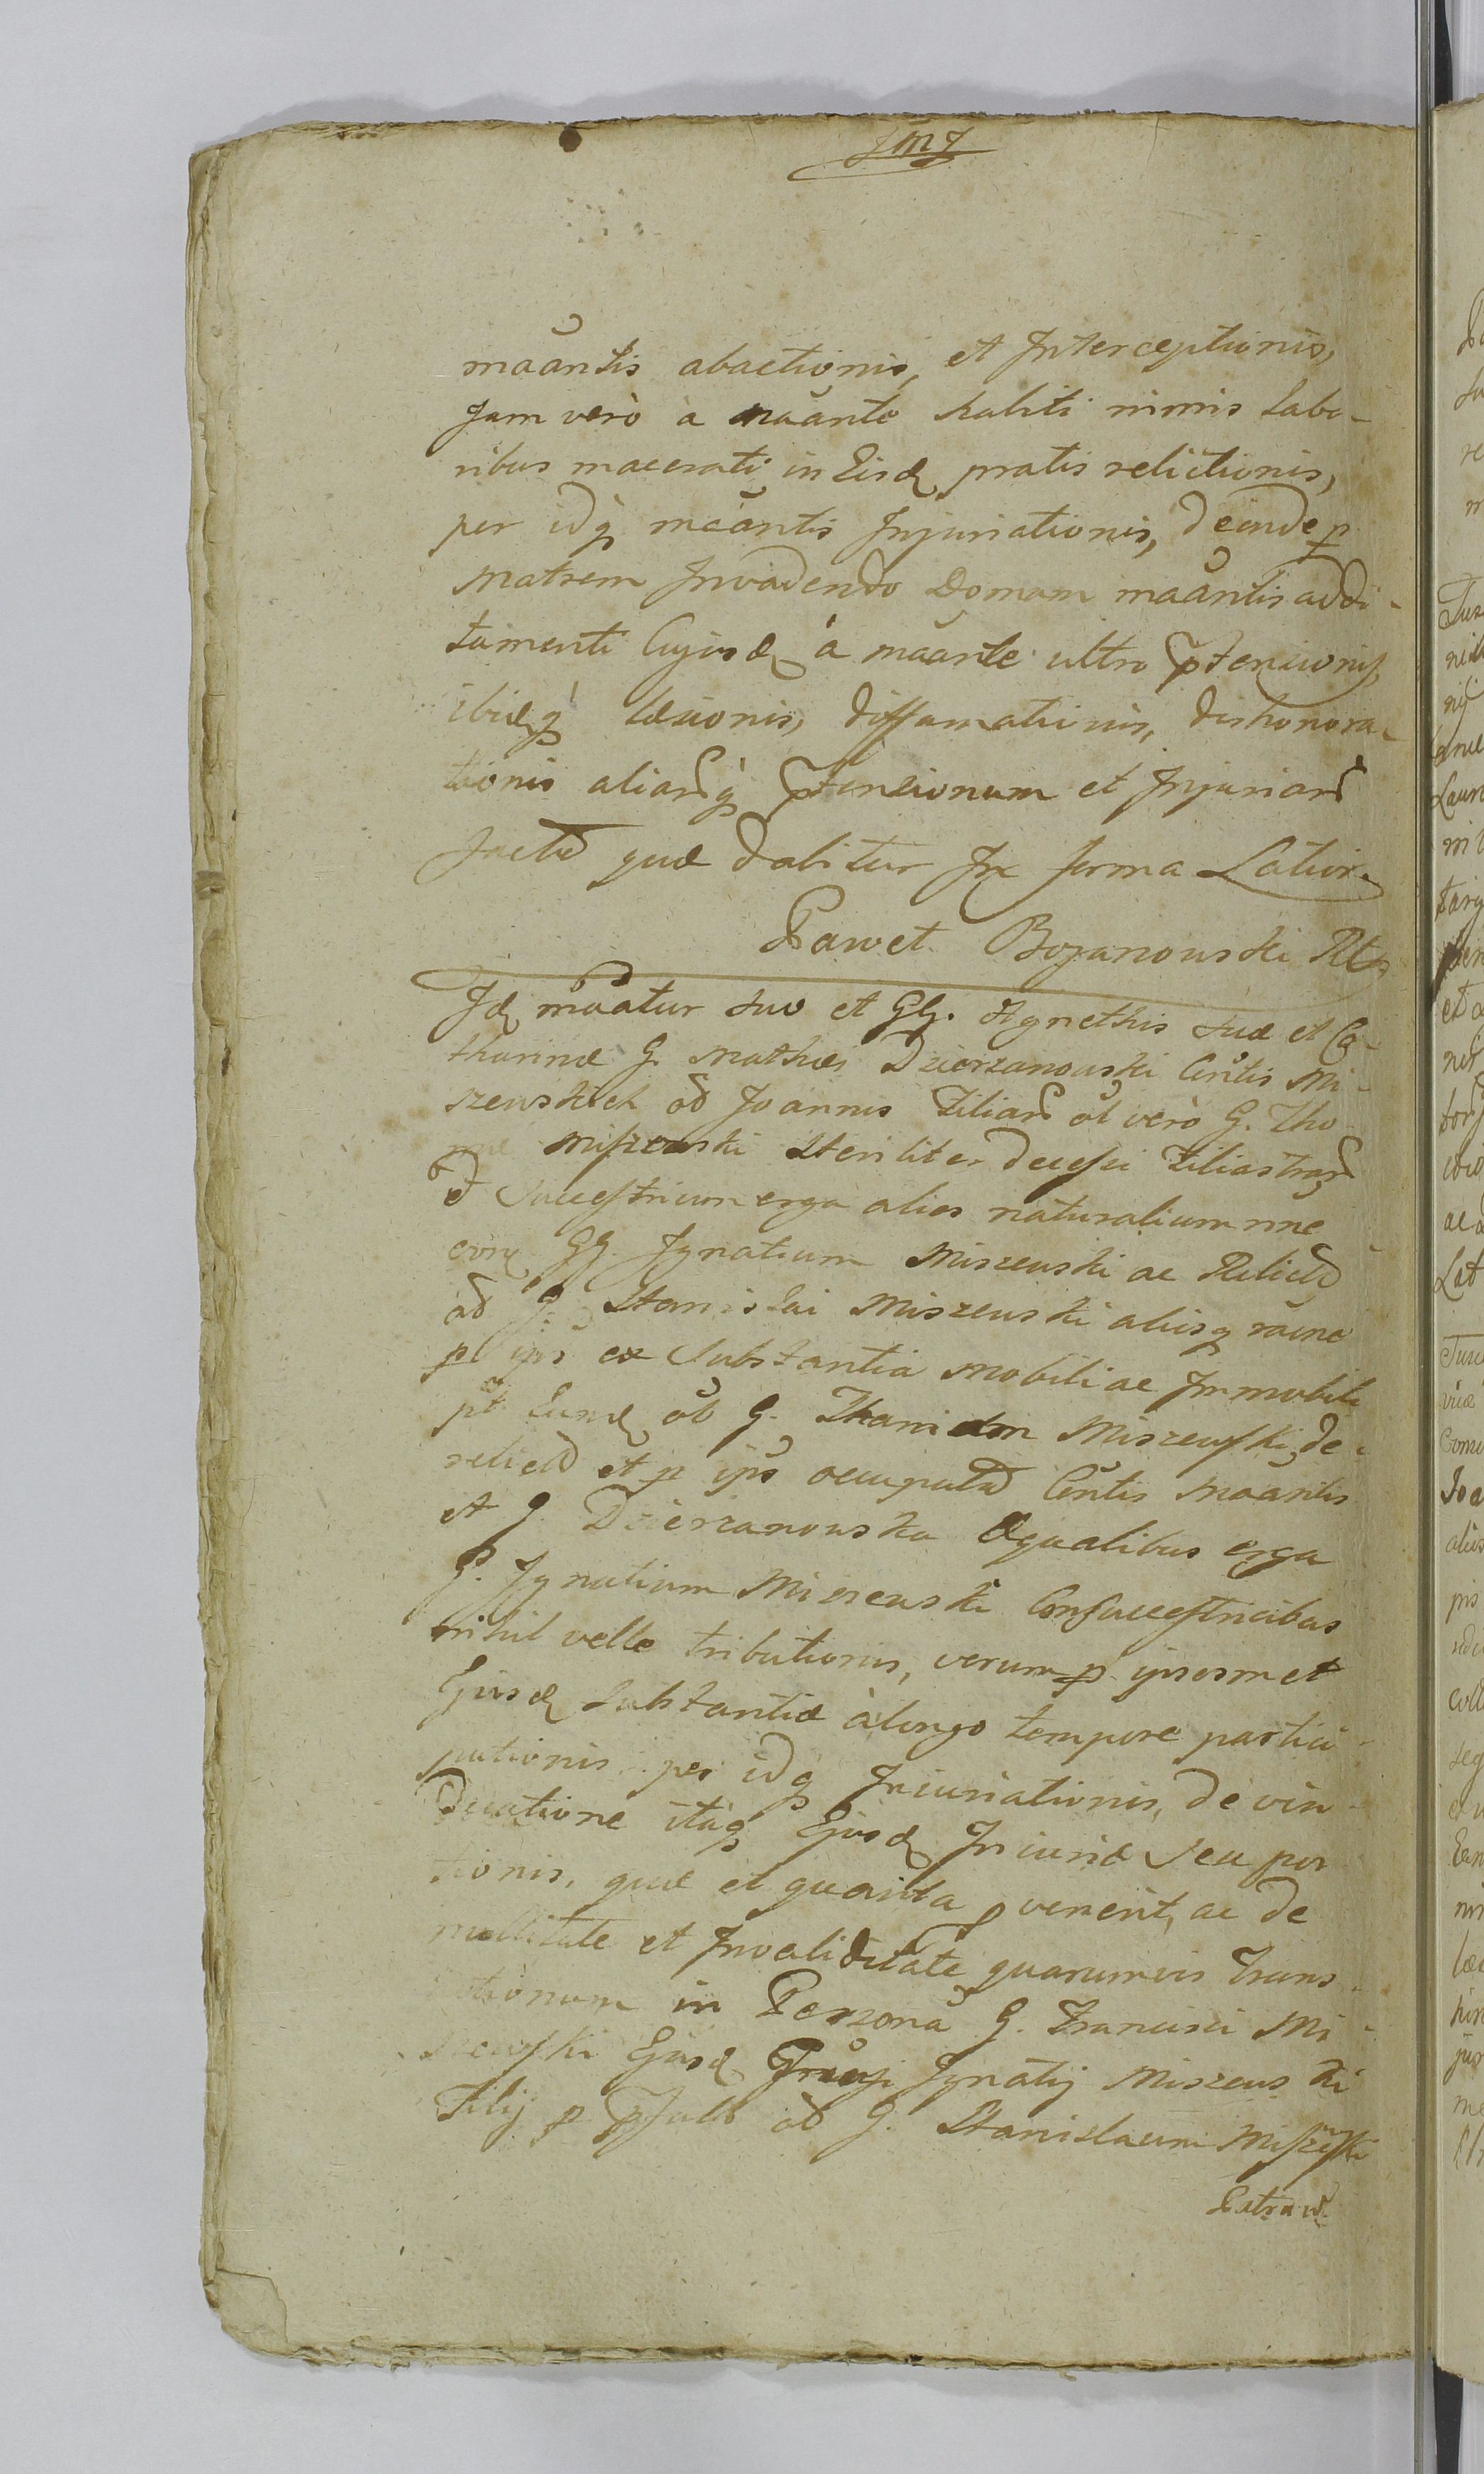 JMJ
maantis abactionis, et Interceptionis,
Jam verò à maante habiti nimis labo-
ribus macerati in Eisd pratis relictionis,
per idq maantis Injuriationis, deinde p
Matrem Invadendo Domum maantis addi-
tamenti Cujusd à maante ultro ptensionis,
ibidq læsionis, diffamationis, dishonora-
tionis aliarq ptensionum et Injuriar
factar quæ dabitur In forma Latior.
Paweł Bojanowski
Id maatur suo et GG. Agnethis suæ et Ca-
tharinæ G. Mathæi Dzierzanowski Contis Mi-
szewskich od Joannis Filiar ol verò G. Tho-
mæ Miszewski steriliter decessi Filiastrar
Successtricum erga alios naturalium nne
GG. Ignatium Miszewski ac Relictar
od G. Stanislai Miszewski aliisq raõne
p ips ex Substantia Mobili ac Immobili
pt Eund ol G. Miszewski de-
relictar et p ips occupatar Contis Maantis
et G. Dzierzanowska Æqualibus erga
G. Ignatium Miszewski Consuccesstricibus
nihil velle tributionis, verum p ipsosmet
Ejusd Substantiæ àlongo tempore partici-
pationis per idq Iniuriationis, de vin-
dicatione itaq Ejusd Iniuriæ seu por
tionis, quæ et quanta pvenerit, ac de
nullitate et Invaliditate quarumvis Trans-
actionum in Persona G. Francisci Mi-
szewski Ejusd Ignatij Miszewski
Filij p pfatt od G. Stanislaum Miszewski